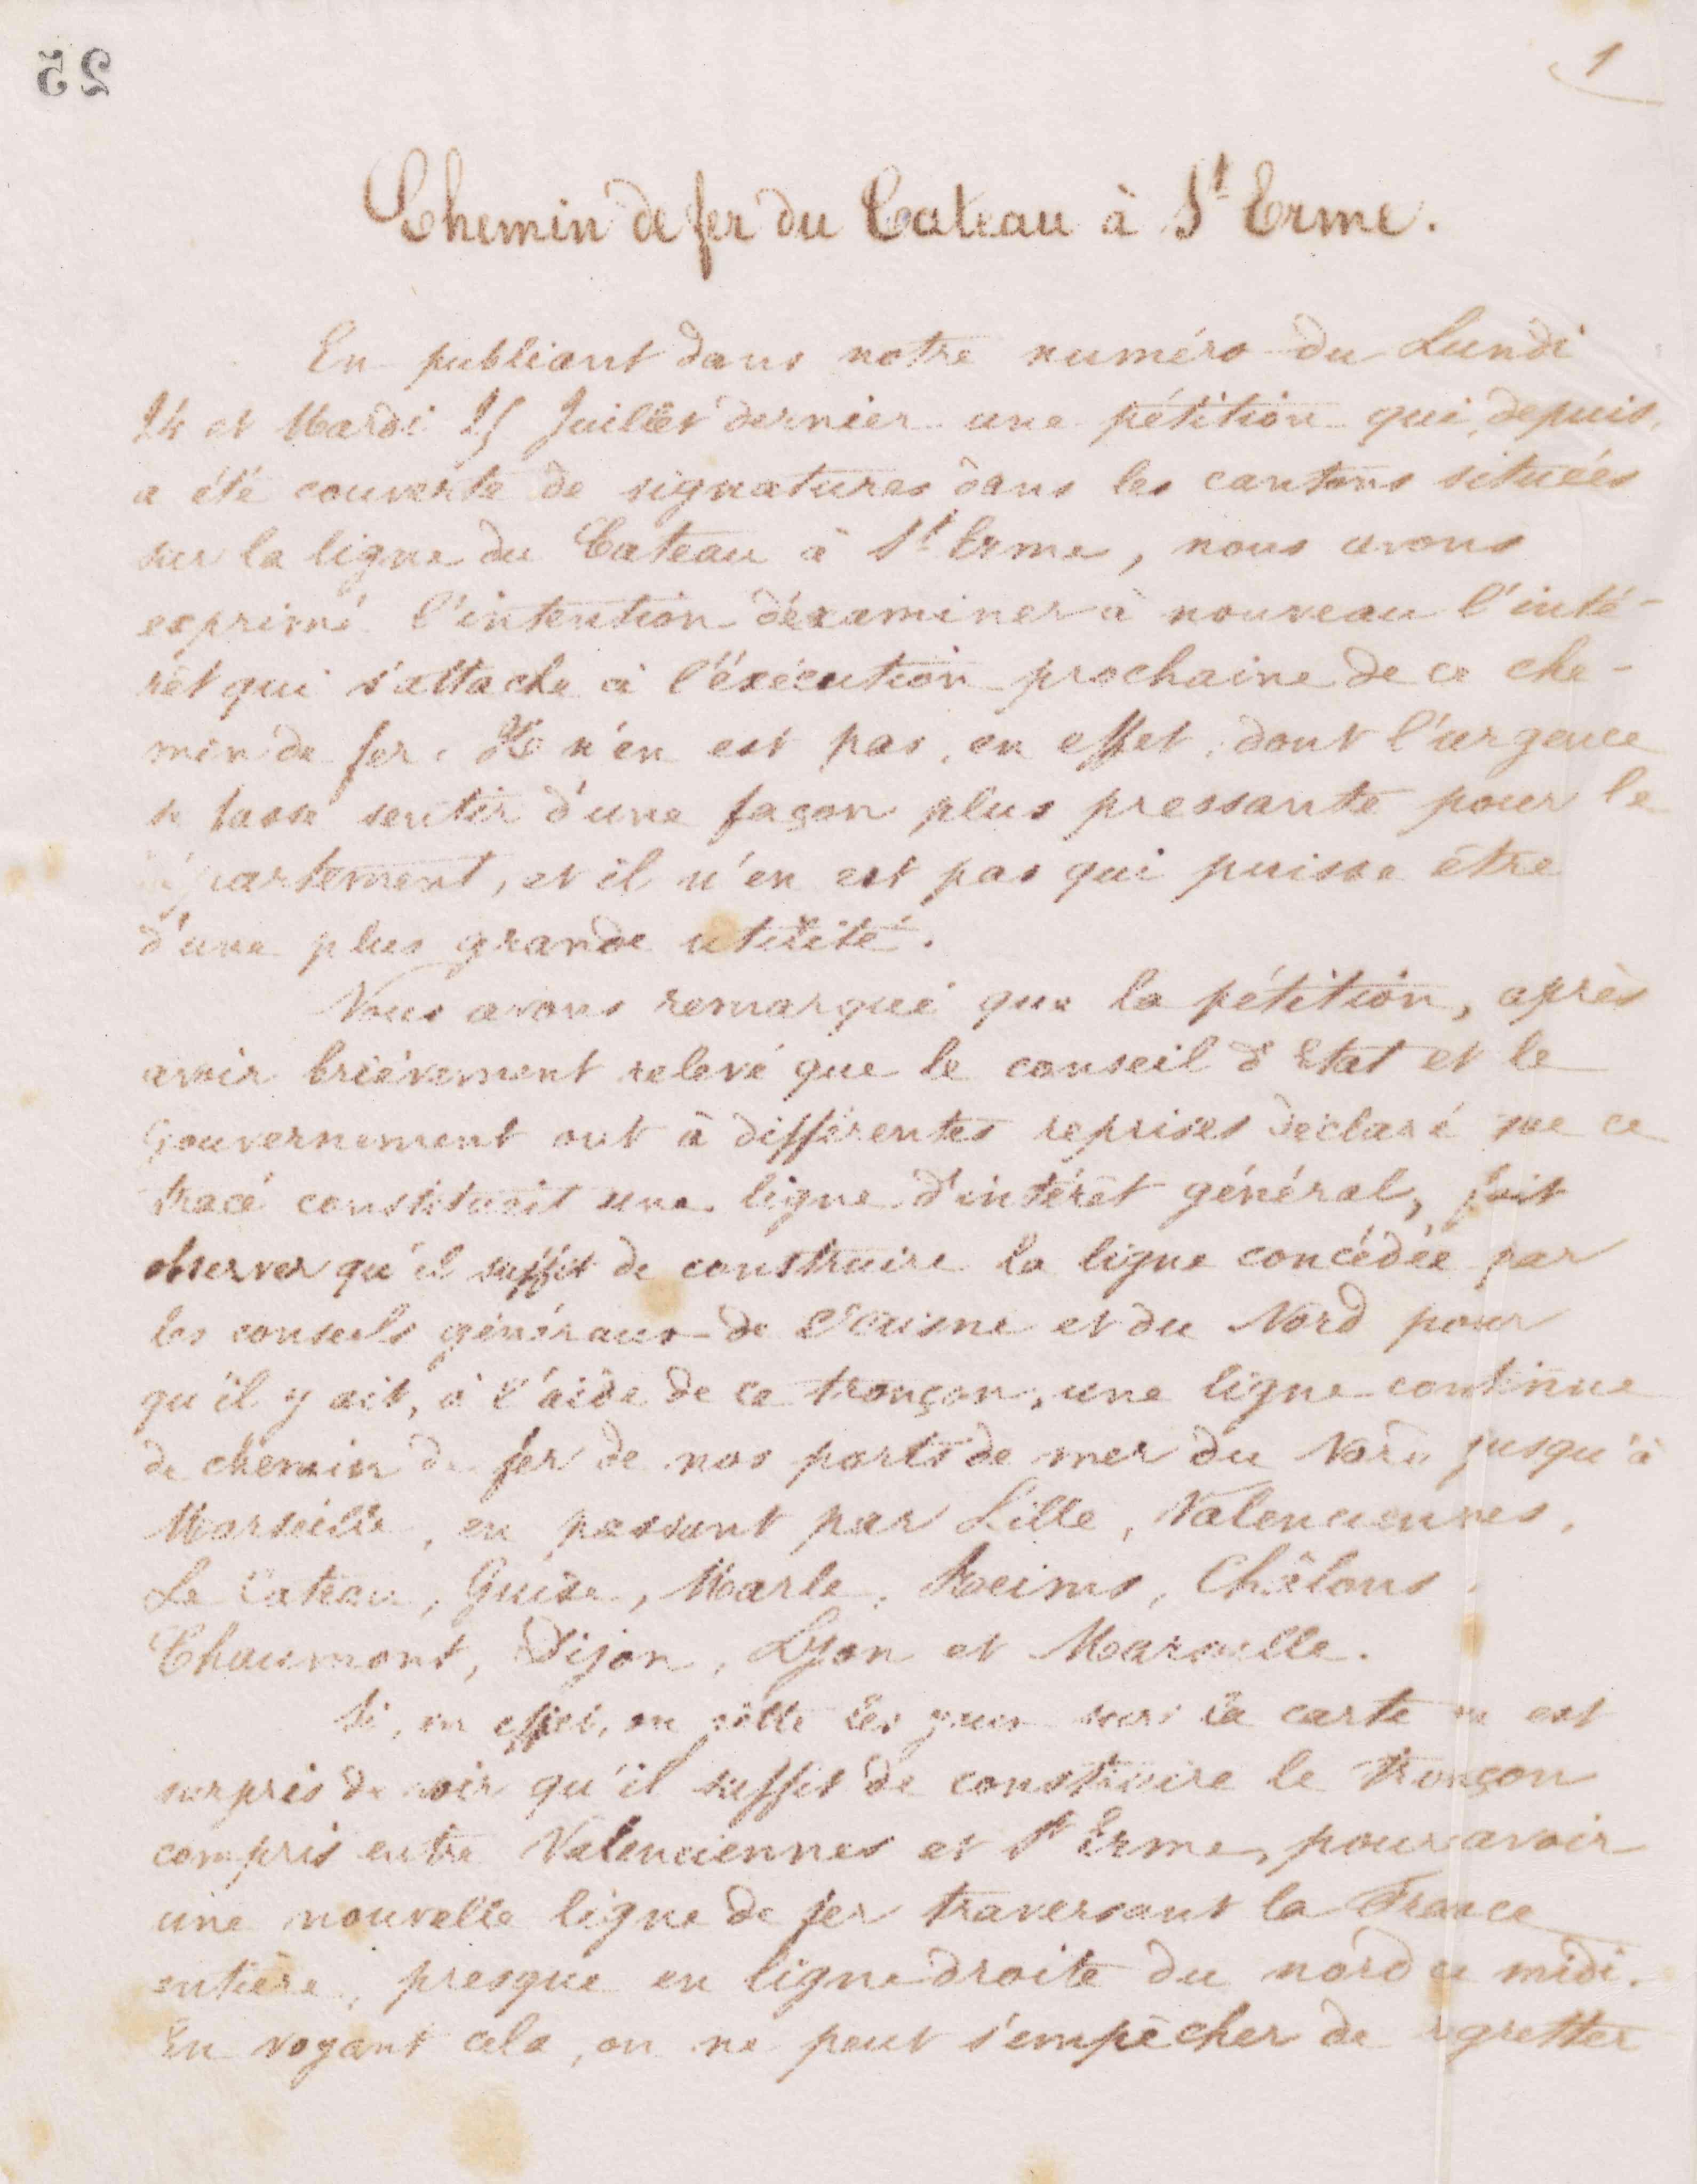 25
1
Chemin de fer du Cateau à St Erme.
En publiant dans notre numéro du Lundi
24 et Mardi 25 Juillet dernier une pétition qui, depuis,
a été couverte de signatures dans les cantons situées
sur la ligne du Cateau à St Erme, nous avons
exprimé l'intention d'éxaminer à nouveau l'inté-
rêt qui s'attache à l'éxécution prochaine de ce che-
min de fer. Il n'en est pas, en effet, dont l'urgence
se fasse sentir d'une façon plus pressante pour le
département, et il n'en est pas qui puisse être
d'une plus grande utilité.
Nous avons remarqué que la pétition, après
avoir brièvement relevé que le conseil d'Etat et le
Gouvernement ont à différentes reprises déclaré que ce
tracé constituait une ligne d'intérêt général, fait
observer qu'il suffit de construire la ligne concédée par
les conseils généraux de l'Aisne et du Nord pour
qu'il y ait, à l'aide de ce tronçon, une ligne continue
de chemin de fer de nos ports de mer du Nord jusqu'à
Marseille, en passant par Lille, Valenciennes,
Le Cateau, Guise, Marle, Reims, Châlons,
Chaumont, Dijon, Lyon et Marseille.
Si, en effet, on jette les yeux sur la carte on est
surpris de voir qu'il suffit de construire le tronçon
compris entre Valenciennes et St Erme, pour avoir
une nouvelle ligne de fer traversant la France
entière, presque en ligne droite du nord au midi.
En voyant cela, on ne peut s'empêcher de regretter